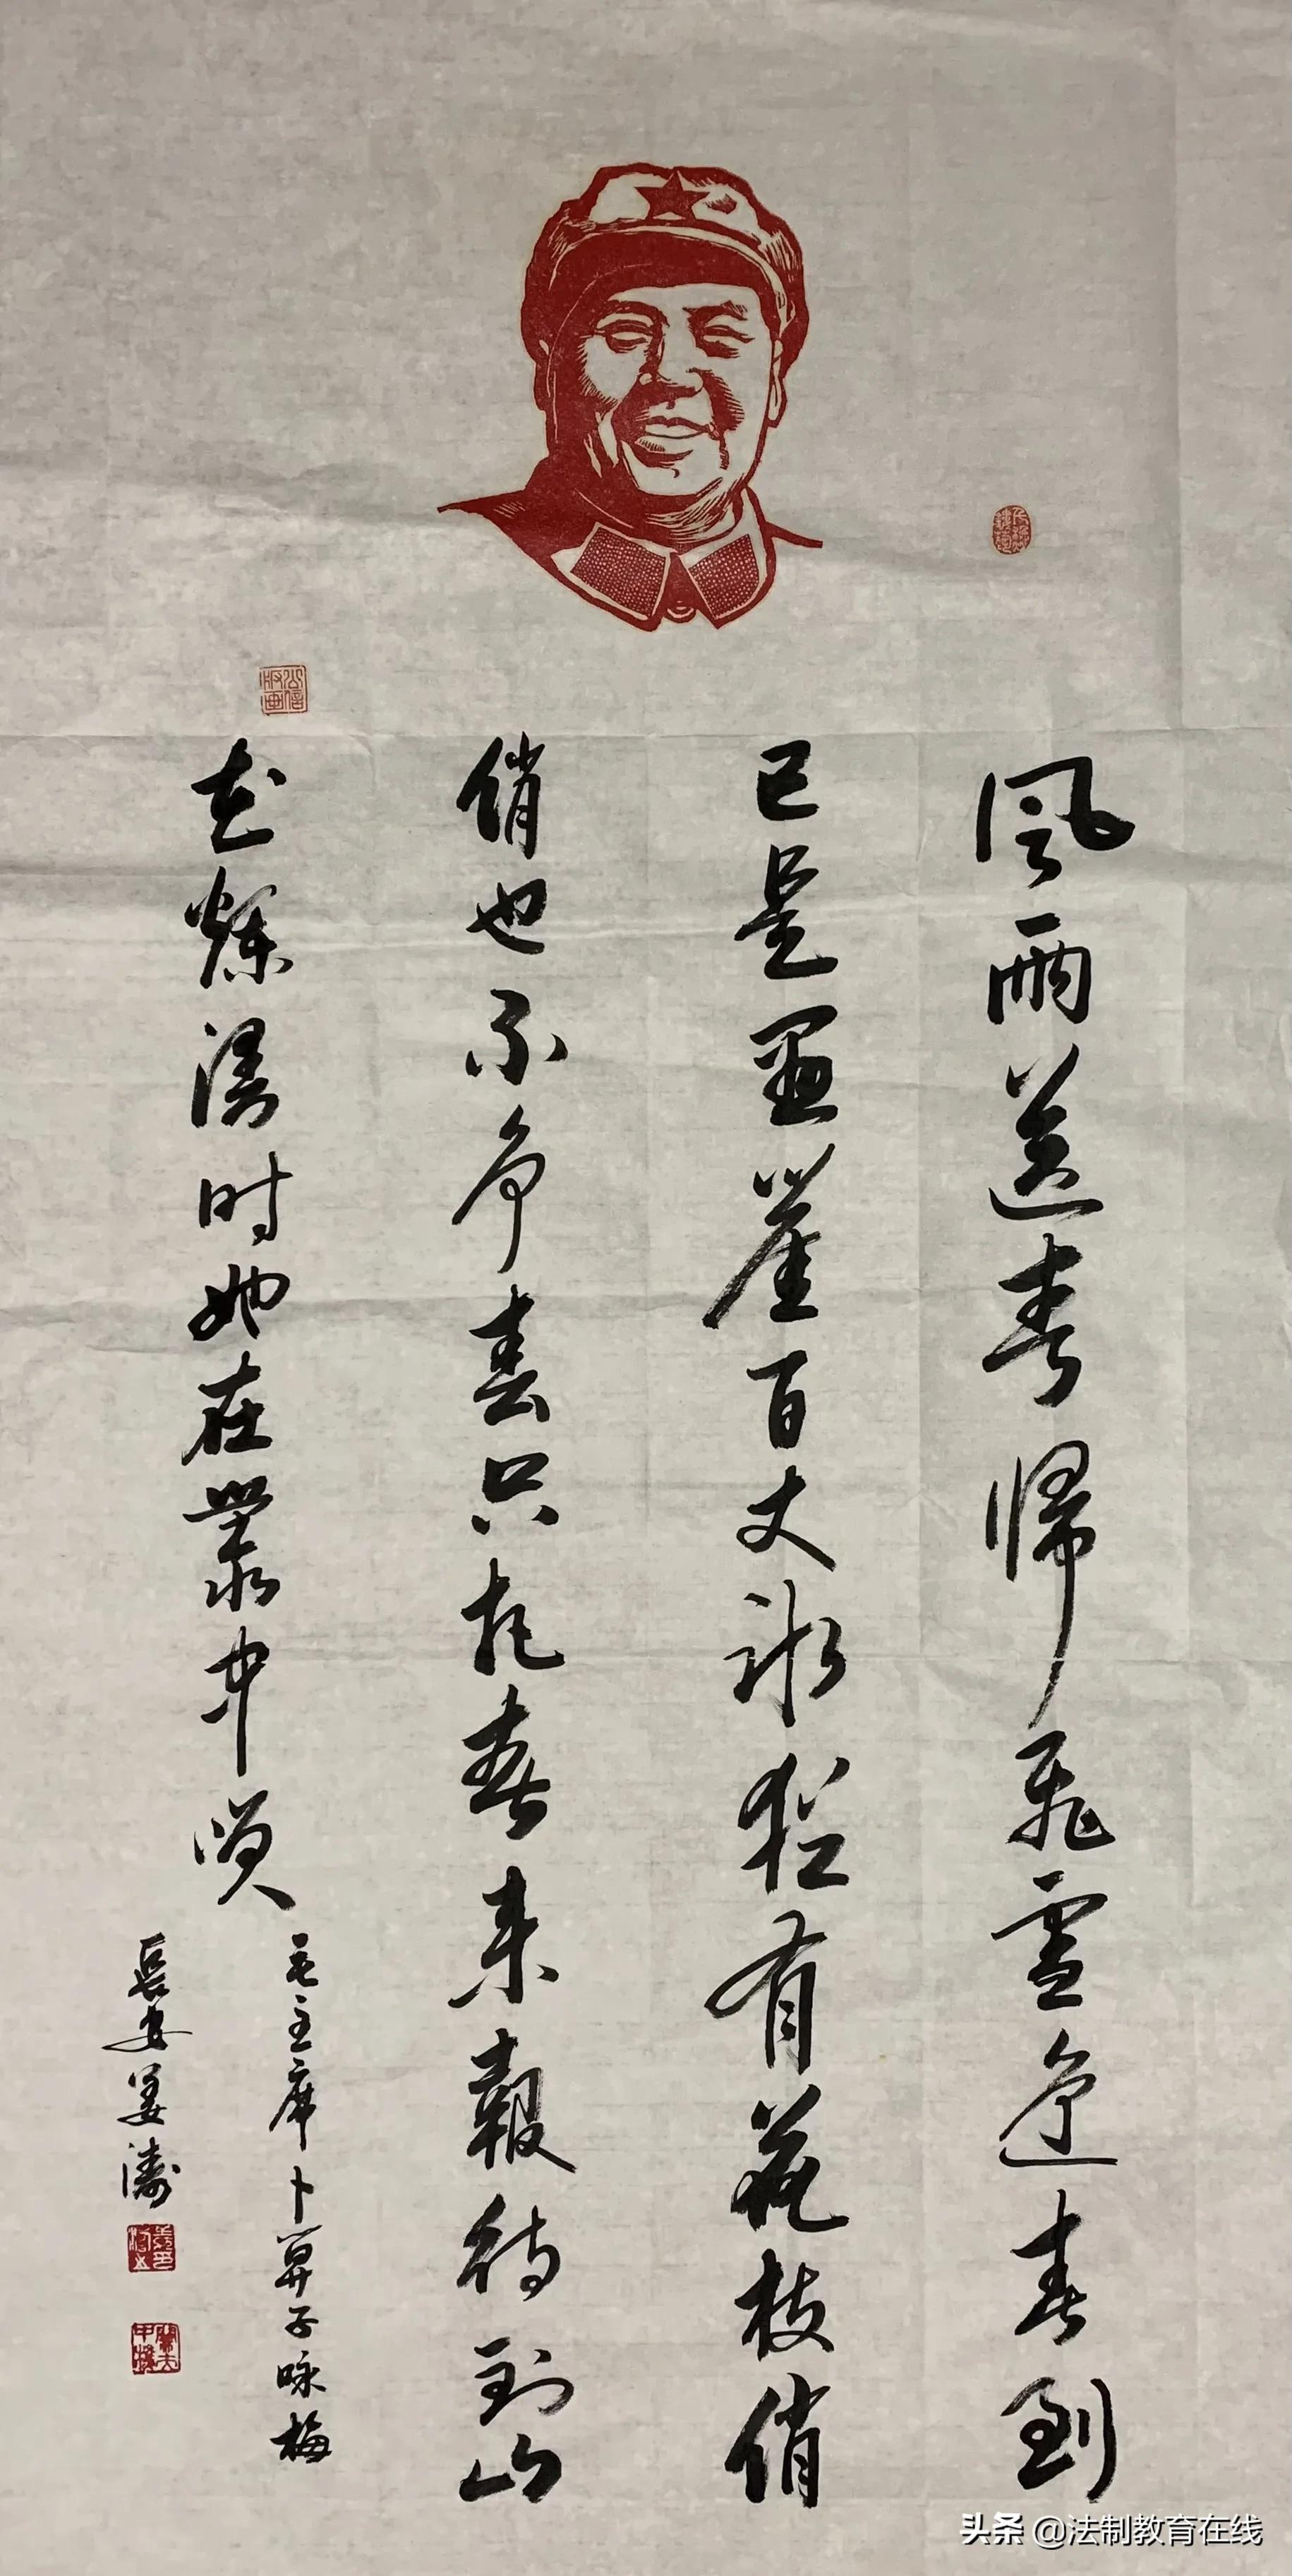 風雨送春帰飛雪迎春到
已是懸崖百丈冰猶有花枝俏
俏也不争春只把春来報待到山
花爛漫时她在叢中笑
毛主席卜算子咏梅
長安姜濤
公信版画
头条 @法制教育在线